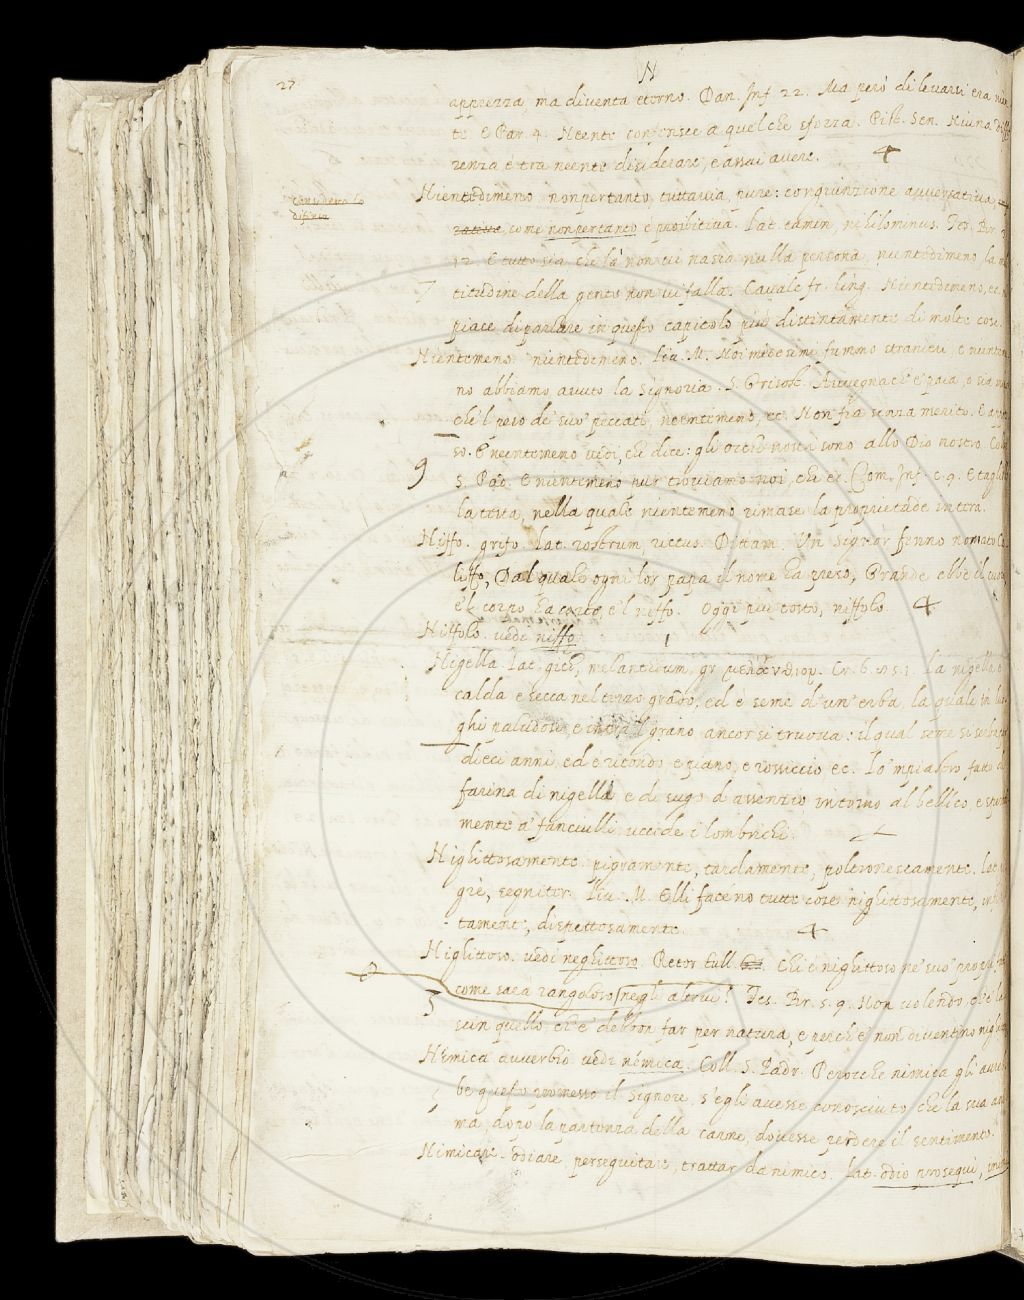 27
N
apprezza, ma diventa eterno. Dan. Inf. 22. Ma però di levarsi era nien
te. E Par. 4. Neente conferisce a quel che sforza. Pist. Sen. Niuna diffe
renza è tra neente disiderare, e assai avere. 4
considera la
difinia
Nientedimeno, nonpertanto, tuttavia, pure: congiunzione avversativa,
come nonpertanto è proibitiva. Lat. tamen, nihilominus. Tes. Br. 2
12. E tutto sia che là non vi nasca nulla persona, nientedimeno la
titudine della gente non vi falla. Cavalc. fr. ling. Nientedimeno, ec.
piace di parlare in questo capitolo più distintamente di molte cose.
Nientemeno. nientedimeno. Liv. M. Noi medesimi fummo stranieri e nienteme
no abbiamo avuto la signoria. S. Grisost. Avvegnachè paia, o sia
che'l peso de' suo' peccati, neentemeno, ec. Non fia senza merito. E
so. E neentemeno vedi, che dice: gli occhi nostri sono allo Dio nostro. Coll
9
S. Pad. E nientemeno pur troviamo noi, che ec. Com. Inf. c. 9. E tagliò
la testa, nella quale nientemeno rimase la proprietade intera.
Niffo. grifo. Lat. rostrum, rictus. Dittam. Un signor fenno nomato Ca
liffo, Dal quale ogni lor papa il nome ha preso, Grande ebbe il cuore
e'l corpo, ha corto e'l niffo. Oggi più tosto, niffolo. 4
Niffolo. vedi niffo.
Nigella. Lat. git, melanthium, gr. μελάνθιον. Cr. 6. 81. 1. La nigella è
calda e secca nel terzo grado, ed è seme d'un'erba, la quale in luo
ghi paludosi, e intra 'l grano ancor si truova: il qual seme si serba
dieci anni, ed è ritondo e piano, e rossiccio ec. Lo 'mpiastro fatto di
farina di nigella e di sugo d'assenzio, intorno al bellico, e spezial
mente a' fanciulli uccide i lombrichi.
Nighittosamente. pigramente, tardamente, poltronescamente. Lat. pi
grè, segniter. Liv. M. Elli facéno tutte cose nighittosamente,
tamente, dispettosamente. 4
Nighittoso. vedi neghittoso. Retor. Tull. Chi è nighittoso ne' suo'
come sarà rangoloso negli altrui? Tes. Br. 5. 9. Non volendo, ch'e'
3
sien quello che e' debbon far per natura, e perchè non diventino nighi
Nimica avverbio. vedi nemica. Coll. S. Padr. Perocchè nimica gli avreb
be questo promesso il signore, s'egli avesse conosciuto, che la sua ani
ma, dopo la partenza della carne, dovesse perdere il sentimento.
Nimicare. odiare, perseguitare, trattar da nimico. Lat. odio prosequi,